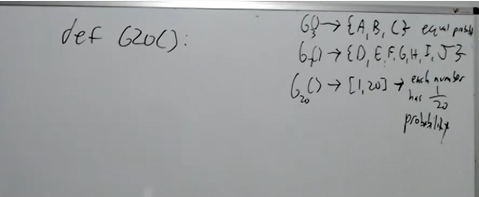 def G20():
G3() → {A, B, C} equal probable
G7() → {D, E, F, G, H, I, J}
G20() → [1, 20] → each number
has 1/20
probability